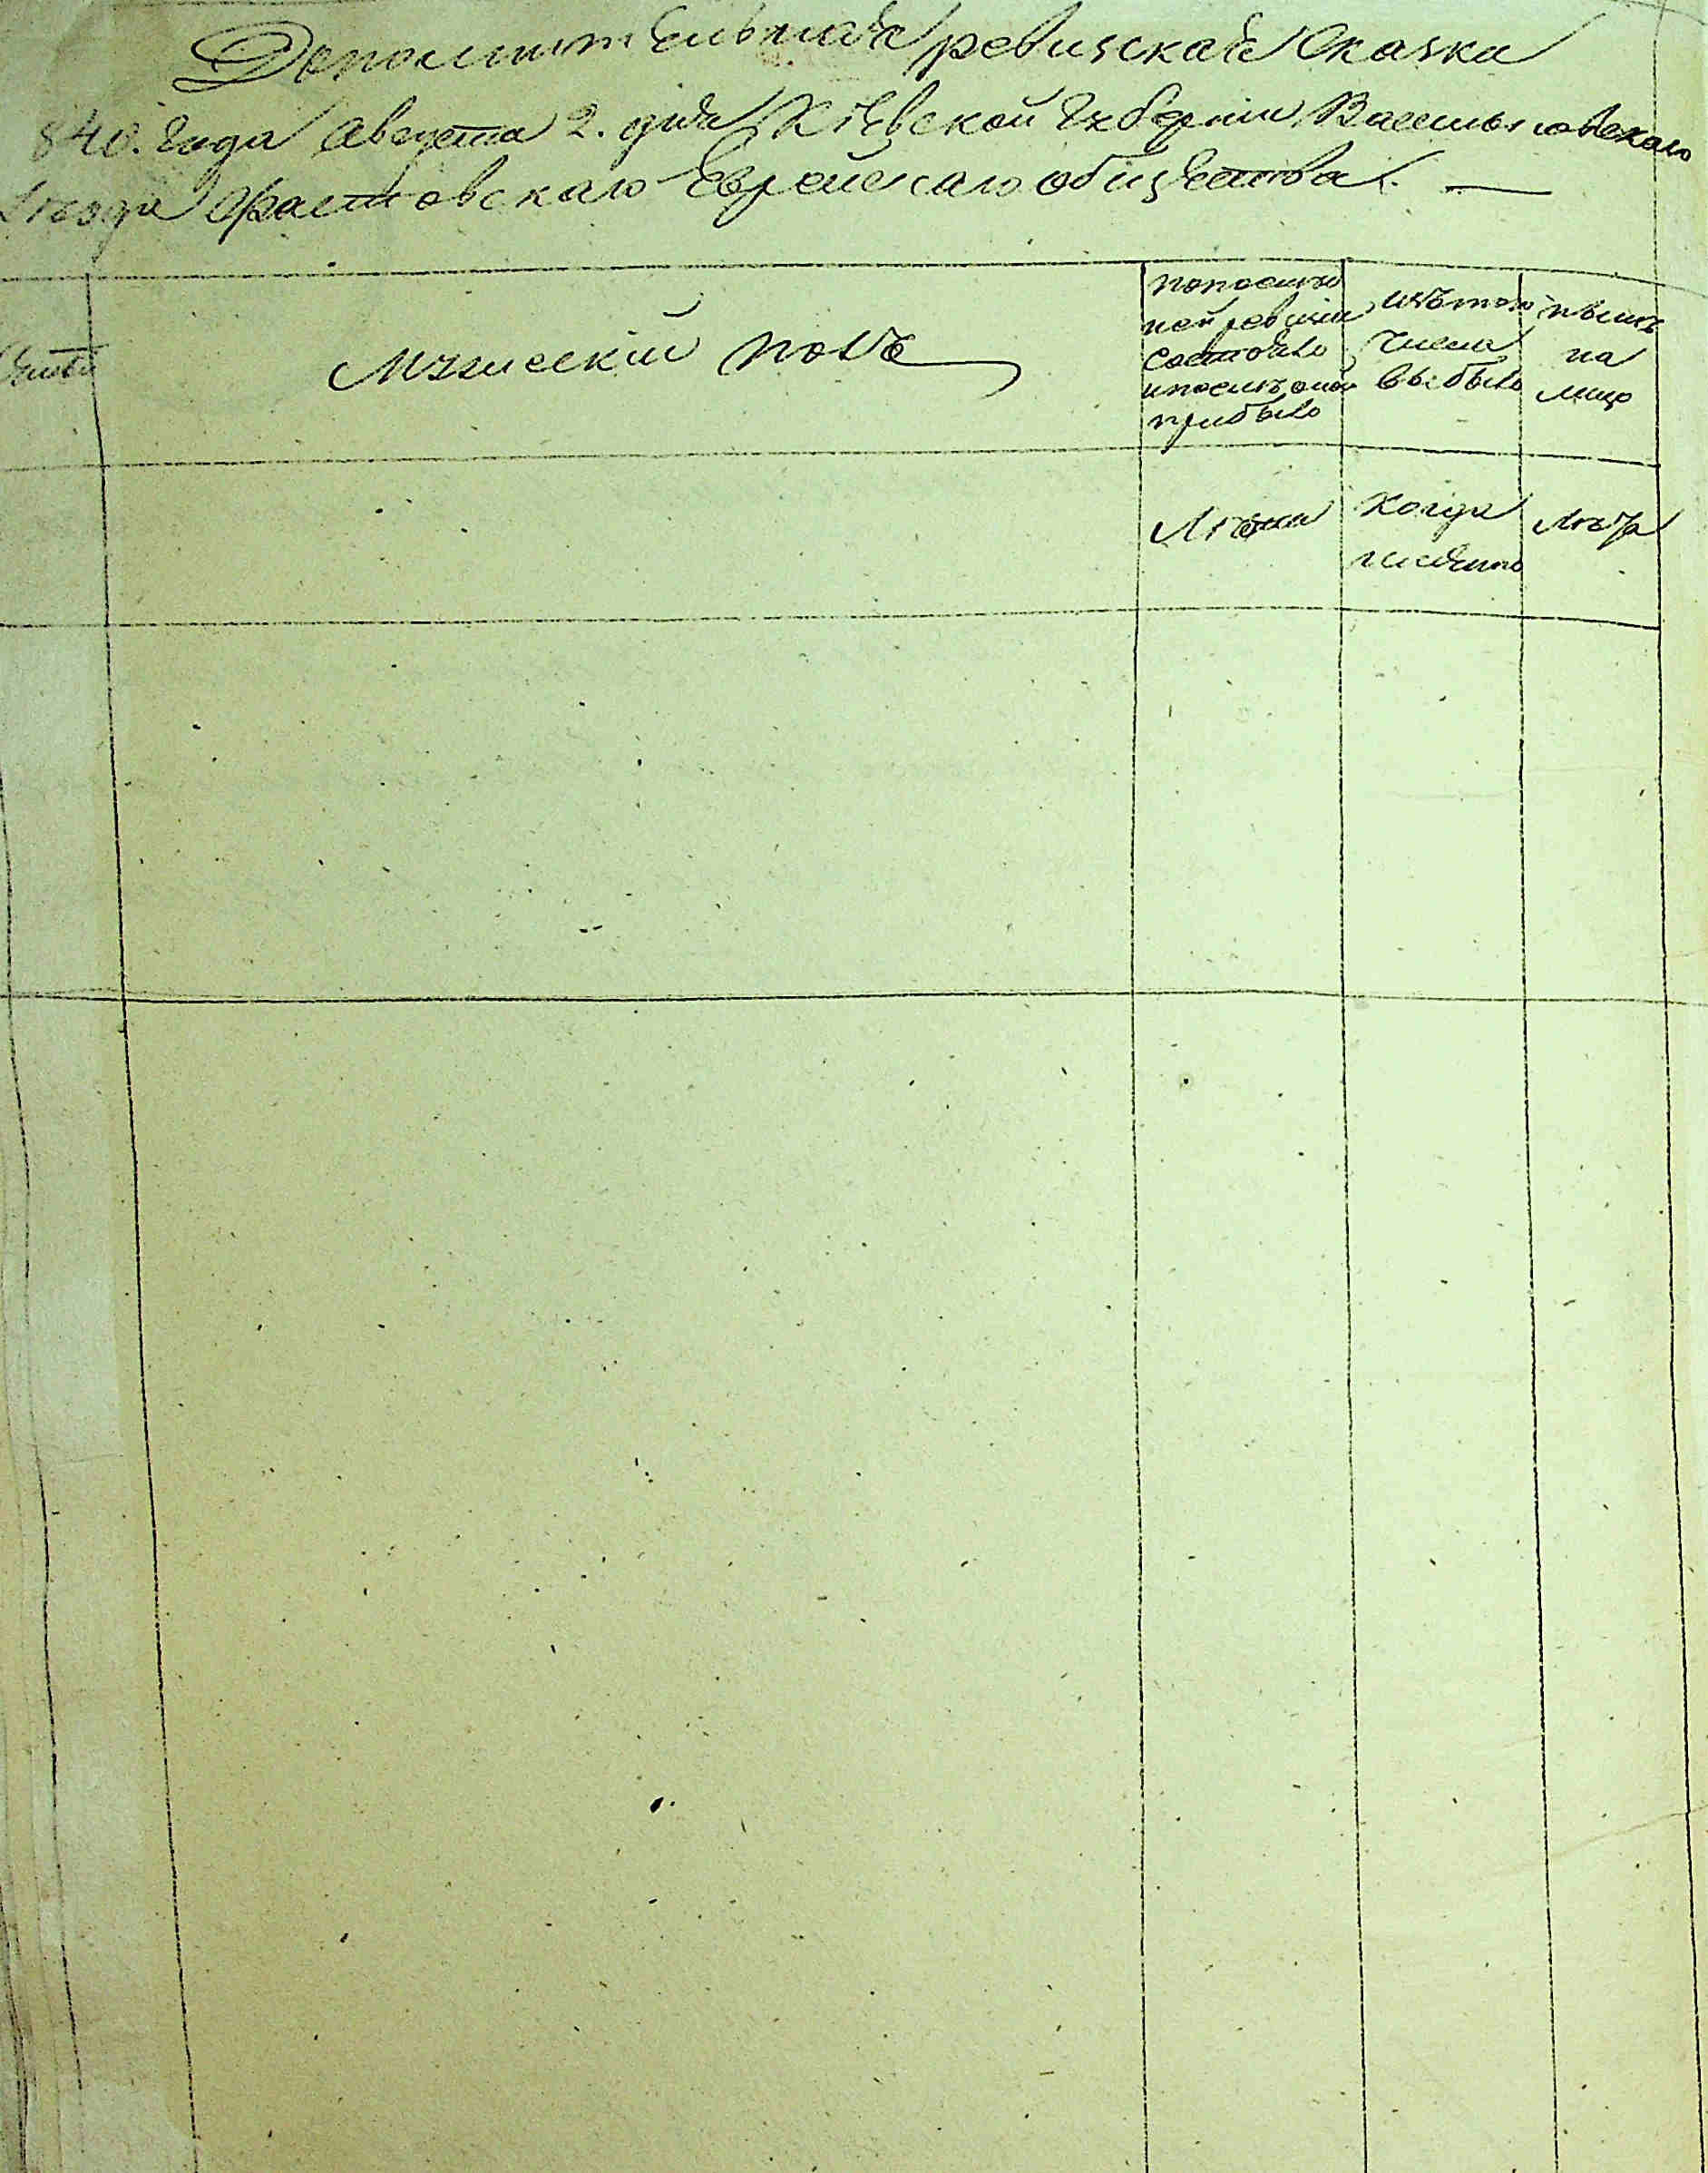 Дополнительная ревизская сказка
840. года Августа 2. дня Кіевской Губерніи Васильковскаго
Уезда Фастовскаго Еврейскаго общества. —
Мужескій полъ
попослед
ней ревизіи
состояло
и после оной
прибыло
изътого
числа
выбыло
ныне
на
лицо
Лета
Когда
именно
Лета